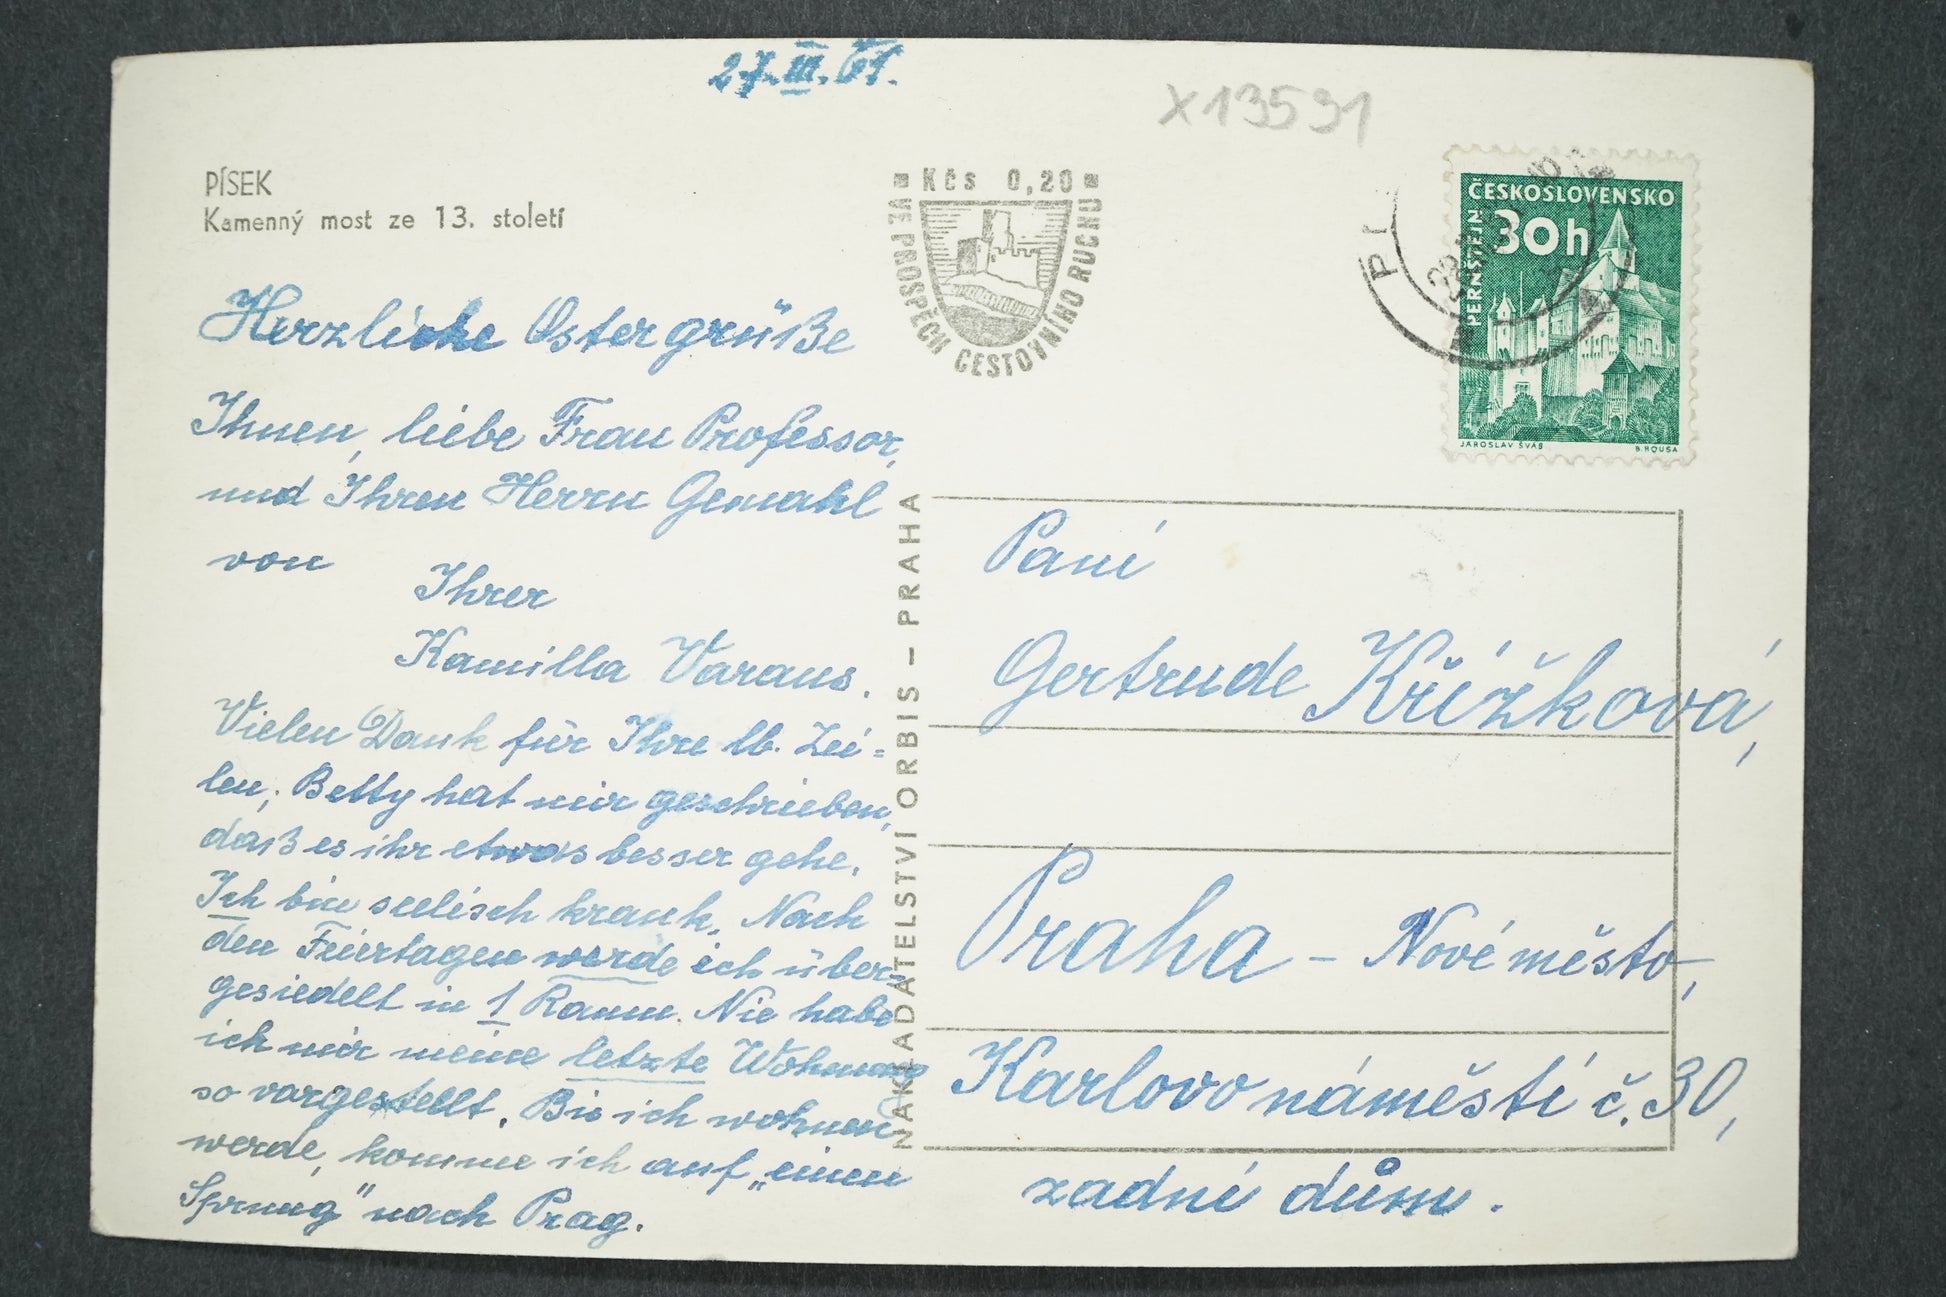 27.III.61.
X13591
PÍSEK
Kamenný most ze 13. století
Kčs 0,20
VE PROSPĚCH CESTOVNÍHO RUCHU
ČESKOSLOVENSKO
30h
PERNŠTEJN
JAROSLAV ŠVÁB
B. HOUSA
Herzliche Ostergrüße
Ihnen, liebe Frau Professor,
und Ihren Herrn Gemahl
von
Ihrer
Kamilla Varaus.
Vielen Dank für Ihre lb. Zei=
len; Betty hat mir geschrieben,
daß es ihr etwas besser gehe.
Ich bin seelisch krank. Nach
den Feiertagen werde ich über-
gesiedelt in 1 Raume. Nie habe
ich mir meine letzte Wohnung
so vorgestellt. Bis ich wohnen
werde, komme ich auf „einen
Sprung" nach Prag.
NAKLADATELSTVÍ ORBIS – PRAHA
Paní
Gertrude Křížková,
Praha – Nové město,
Karlovo náměstí č. 30,
zadní dům.